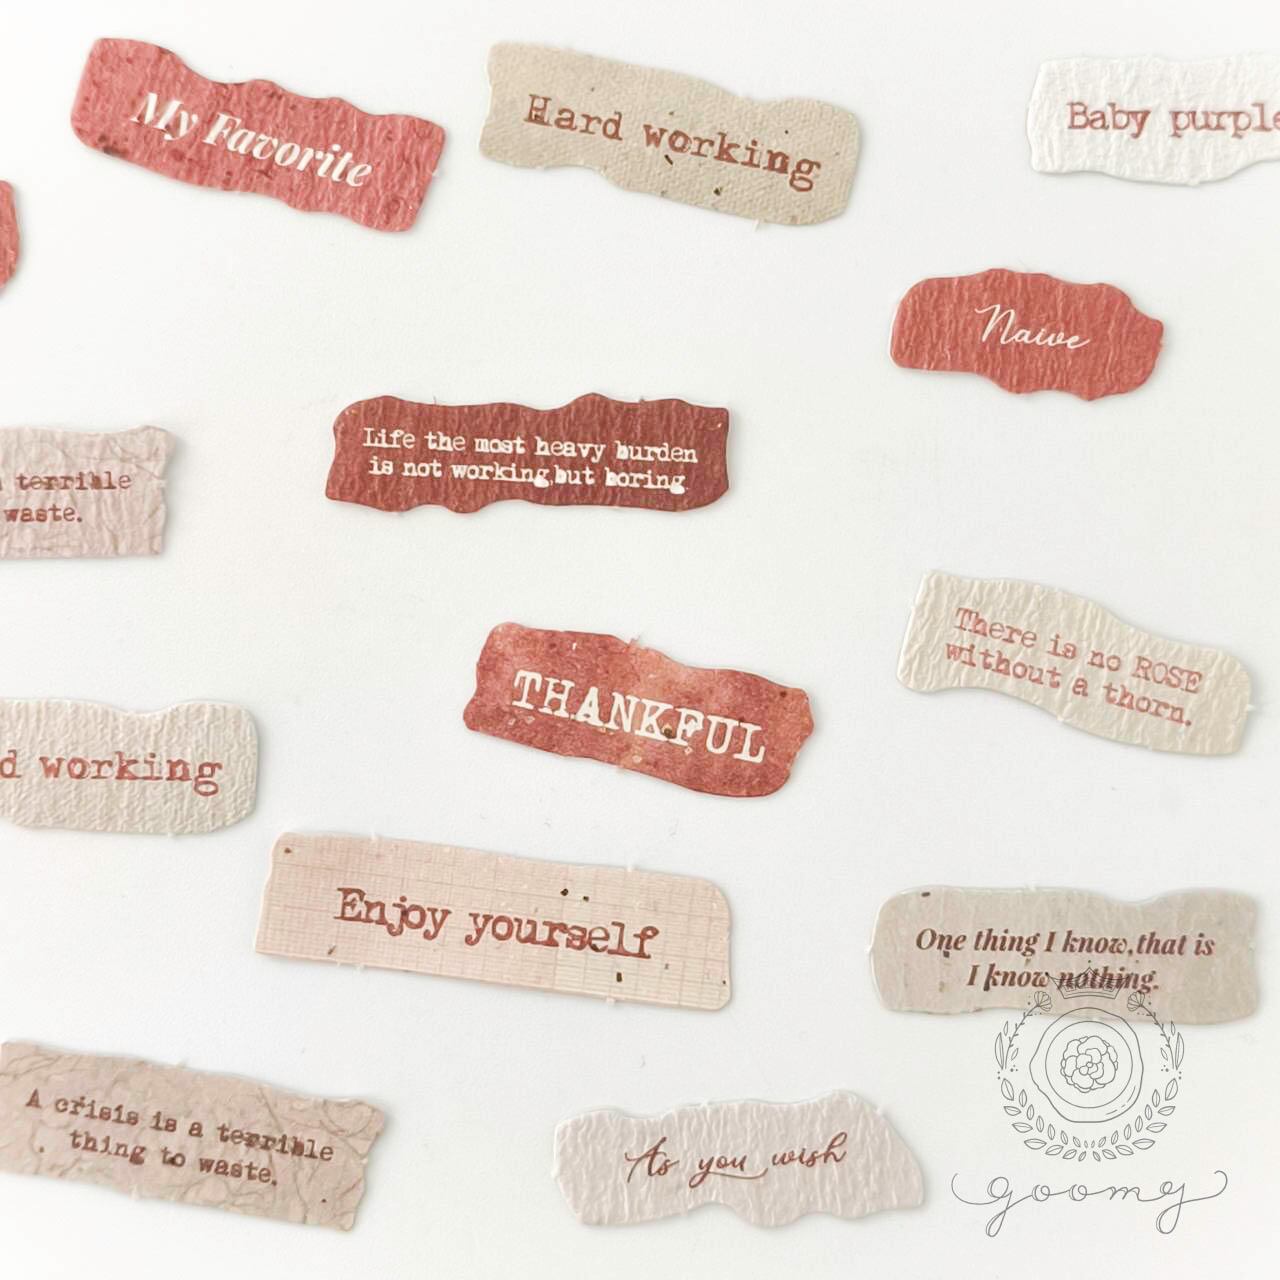 My Favorite
Hard working
Baby purple
Naive
Life the most heavy burden
is not working,but boring
terrible
waste.
There is no ROSE
without a thorn.
THANKFUL
d working
Enjoy yourself
One thing I know,that is
I know nothing.
A crisis is a terrible
thing to waste.
As you wish
goomy